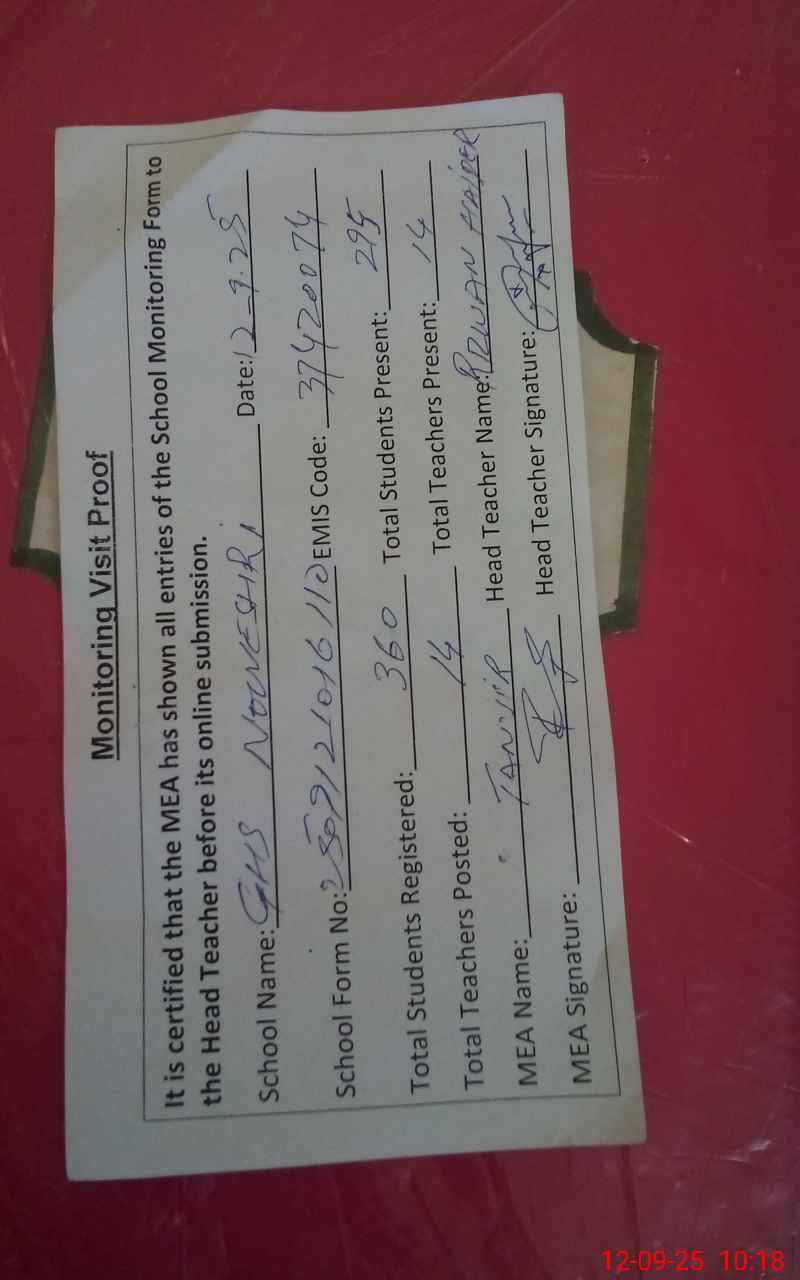 Monitoring Visit Proof
It is certified that the MEA has shown all entries of the School Monitoring Form to
the Head Teacher before its online submission.
School Name: GHS Date: 12-9-25
School Form No: EMIS Code: 37420074
Total Students Registered: 360 Total Students Present: 295
Total Teachers Posted: 14 Total Teachers Present: 14
MEA Name: TANVIR Head Teacher Name: RIZWAN HAIDER
MEA Signature: Head Teacher Signature:
12-09-25 10:18